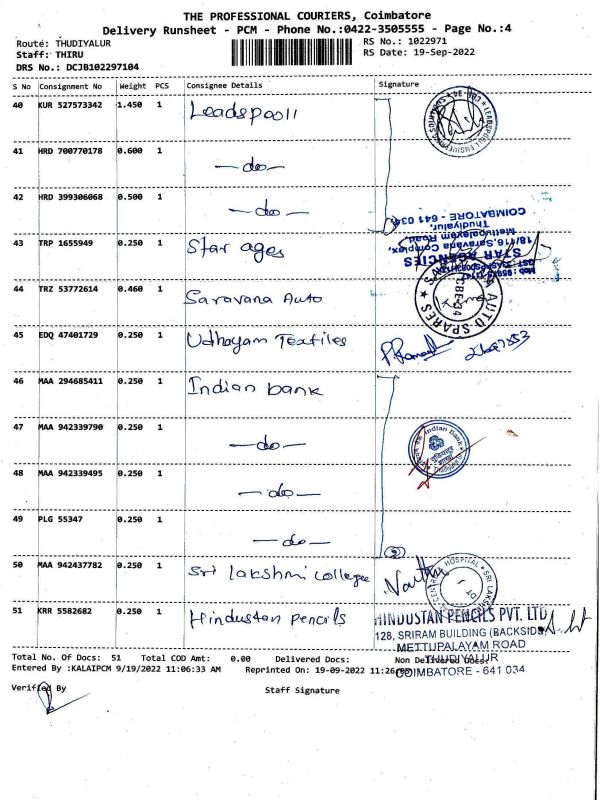 THE PROFESSIONAL COURIERS, Coimbatore
Delivery Runsheet - PCM - Phone No.:0422-3505555 - Page No.:4
Route: THUDIYALUR RS No.: 1022971
Staff: THIRU RS Date: 19-Sep-2022
DRS No.: DCJB102297104
S No Consignment No Weight PCS Consignee Details Signature
40 KUR 527573342 1.450 1 Leadspooll
41 HRD 700770178 0.600 1 -do-
42 HRD 399306068 0.500 1 -do-
43 TRP 1655949 0.250 1 Star ages
STAR AGENCIES
18/116, Saravana Complex,
Mettupalayam Road,
Thudiyalur,
COIMBATORE - 641 034
44 TRZ 53772614 0.460 1 Saravana Auto
AUTO SPARES
CBE-34
45 EDQ 47401729 0.250 1 Udhayam Textiles
46 MAA 294685411 0.250 1 Indian bank
47 MAA 942339790 0.250 1 -do-
Indian Bank
48 MAA 942339495 0.250 1 -do-
49 PLG 55347 0.250 1 -do-
50 MAA 942437782 0.250 1 Sri lakshmi college
HOSPITAL
51 KRR 5582682 0.250 1 Hindustan Pencils
HINDUSTAN PENCILS PVT. LTD
128, SRIRAM BUILDING (BACKSIDE)
METTUPALAYAM ROAD
THUDIYALUR
COIMBATORE - 641 034
Total No. Of Docs: 51 Total COD Amt: 0.00 Delivered Docs: Non Delivered Docs:
Entered By :KALAIPCM 9/19/2022 11:06:33 AM Reprinted On: 19-09-2022 11:26
Verified By Staff Signature